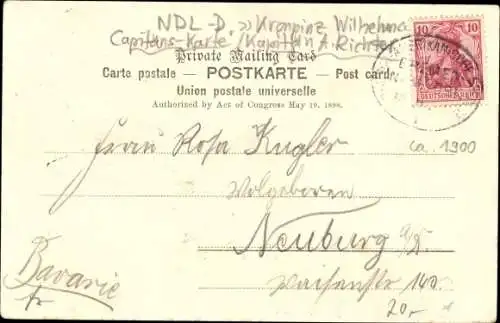 NDL-D. »Kronpinz Wilhelm«
Capitäns-Karte /Kapitän A. Richter
Private Mailing Card
Carte postale — POSTKARTE — Post card
Union postale universelle
Authorized by Act of Congress May 19. 1898.
10 10
DEUTSCHES REICH
ca. 1900
Frau Rosa Kugler
Wolgeboren
Neuburg a/D.
Waisenstr 140.
Bavarie
20,-